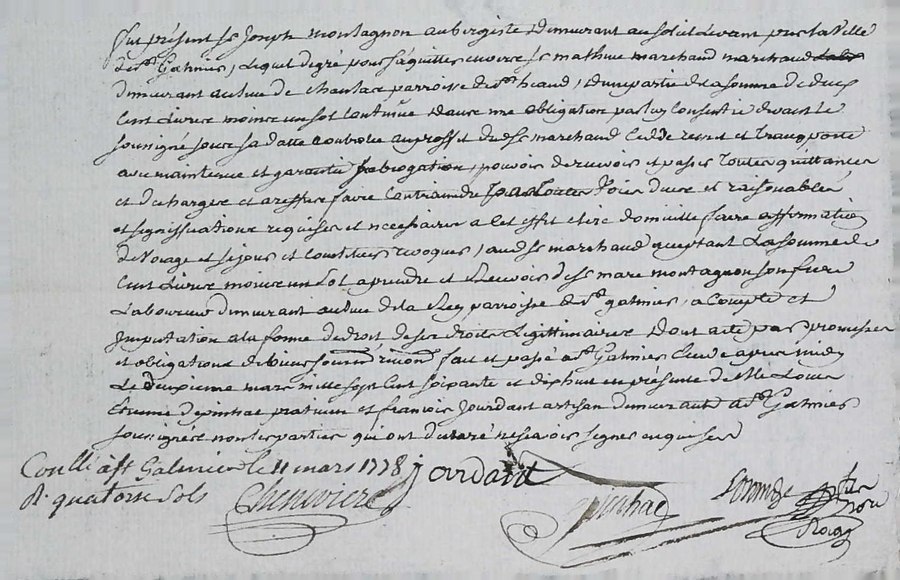 fut présent sr Joseph montagnon aubergiste Demeurant au soleil levant pres la Ville
de st Galmier, lequel degré pour s'aquitter envers sr mathieu marchand marchand
demeurant au lieu de chantare parroisse de st heand, d'une partie de la somme de deux
Cent Livre moins un sol Contenüe Dans une obligation par luy Consentie devant le
souigné sous sa datte Controlée au proffit dudt sr marchand Cede remet et transporte
avec maintenue et garantie subrogation, pouvoir de recevoir et passer Toutes quittances
et decharges et a reffus faire Contraindre par Toutes Voies dues et raisonables
et significations requises et necessaires a Cet effet elire domicille faire affirmation
de Voiage et sejour et Constituer revoquer, audt sr marchand aceptant La somme de
Cent Livre moins un sol a prendre et recevoir de sr mare montagnon son frere
Laboureur demeurant au lieu de la Ley parroisse de st galmier, a Compte et
Imputation a la forme de droit de ses droits Legittimaires Dont acte par promesses
et obligations de biens soumn renonon fait et passé a st Galmier Etude apres midy
Le deuxieme mars mille sept Cent soixante et dixhuit en présence de Me Louis
Etienne depinhac praticien et francois Jourdant artisan demeurants a st Galmier
souignés non les parties qui ont declaré ne scavoir signer enquises
Conllé à st Galmier le 11 mars 1778 Jourdant
R. quatorze sols
Cheuviere pinhac